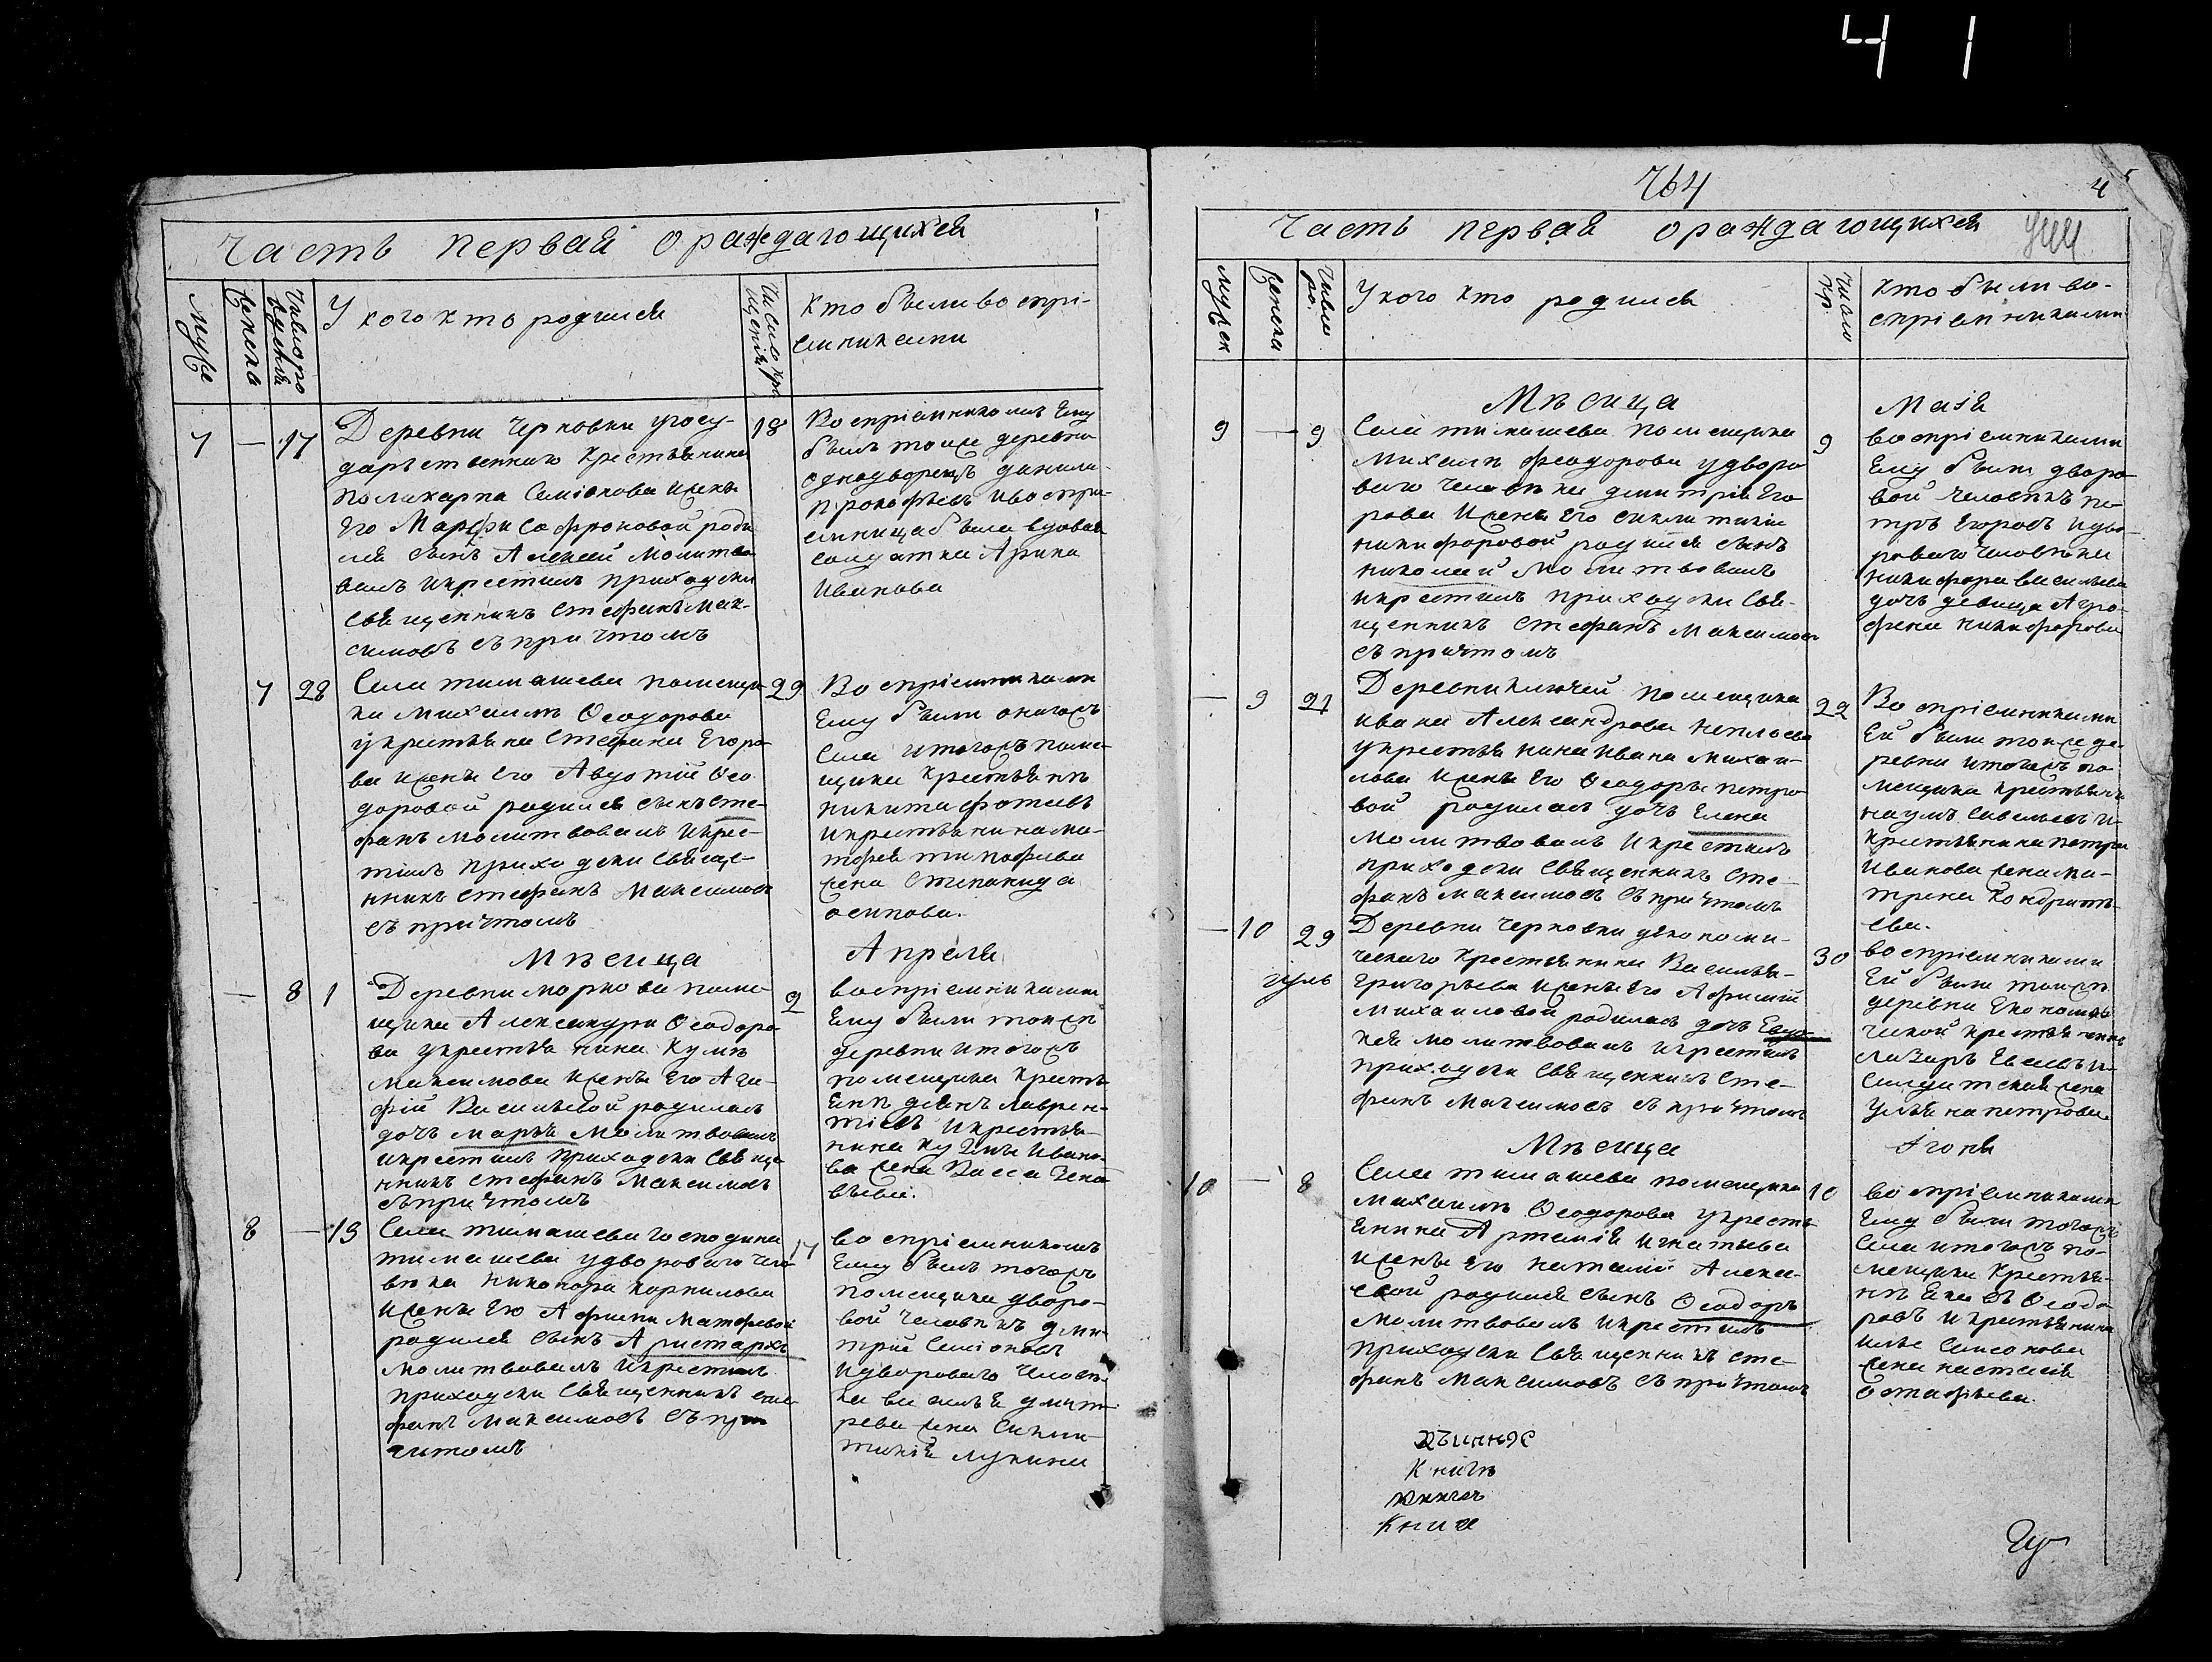 4 1
Часть первая ораждающихся
Муже
Женска
Число ро
ждения
У кого кто родился
Число кре
щения
Кто были воспрі-
емниками
7 — 17
Деревни Черновки угосу-
дарственнаго крестьянина
Поликарпа Семіонова ижены
Его Марфы Софроновой роди
лся сынъ Алексей Молитво
валъ икрестилъ приходски
Священникъ Стефанъ Мак-
симовъ съпричтомъ
18
Воспріемникомъ Ему
былъ тоже деревни
однодворецъ данила
прокофьевъ ивоспри-
емница была вдовая
солдатка Арина
Иванова
7 28
Села тимашева помещи-
ка Михаилъ Ѳеодорова
укрестьяна Стефана Егоро
ва ижены Его Авдотіи Ѳео
доровой родился сынъ Сте-
фанъ молитвовалъ икрес-
тилъ приходски Свяще-
нникъ Стефанъ Максимовъ
съ причтомъ
29
Воспріемниками
Ему были оногожъ
Села итогожъ поме-
щика крестьянъ
никита фотеевъ
икрестьянина ма-
тфея тимофеева
жена Степанида
осипова.
Мѣсяца
Апреля
— 8 1
Деревни моркова поме-
щика Александра Ѳеодоро-
ва укрестьянина Кузмы
Максимова ижены Его Ага-
фіи Васильевой родилась
дочь марья Молитвовалъ
икрестилъ приходски Свяще
нникъ Стефанъ Максимовъ
съпричтомъ
2
воспріемниками
Ему были тоижъ
деревни итогожъ
помещика кресть
янъ деянъ лаврен-
тіевъ икрестья-
нина кузмы Ивано-
ва жена Васса Зено
въева.
8 — 13
Села тимашева господина
тимашева удвороваго чело
века никонора корнилова
ижены Его Афимьи Матфевой
родился сынъ Аристархъ
Молитвовалъ икрестилъ
приходски Священникъ Сте
фанъ Максимовъ съпри
чтомъ
17
воспріемникомъ
Ему былъ тогожъ
помещика дворо-
вой человекъ дми-
трій Семіоновъ
идвороваго челове-
ка василья дмит-
рева жена Сикли-
тикія лукина
764
4
Часть первая ораждающихся
Мужск
Женска
Число
ро.
У кого кто родился
Число
кр.
Кто были во-
спріемниками
Мѣсяца
Маія
9 — 9
Села тимашева помещика
Михаилъ феодорова удворо
ваго человека дмитрія Его
рова ижены Его сиклитикіи
никифоровой родился сынъ
николай Молитвовалъ
икрестилъ приходски Свя-
щенникъ Стефанъ Максимовъ
съ причтомъ
9
воспріемниками
Ему были дворо
вой человекъ пе-
тръ Егоровъ идво-
роваго человека
никифора васильева
дочь девица Агро-
фена никифорова
— 9 21
Деревни ключей помещика
ивана Александрова неплюева
укрестьянина ивана михаи-
лова ижены Его Ѳеодоры петро
вой родилась дочь Елена
Молитвовалъ икрестилъ
приходски Священникъ Сте-
фанъ максимовъ съ причтомъ
22
Воспріемниками
Ей были тоиже де-
ревни итогожъ по-
мещика крестьянъ
наумъ Савельевъ и-
крестьянина петра
Иванова жена ма-
трена Кондрать
ева.
— 10 29
Деревни Черновки уекономи-
ческаго крестьянина Василья
Григорьева ижены Его Афимьи
Михаиловой родилась дочь Евдо
кея молитвовалъ икрестилъ
приходски Священникъ Сте-
фанъ Максимовъ съ причтомъ
30
воспріемниками
Ей были тоижъ
деревни Економи
ческой крестьянинъ
лазарь Евсевъ и-
Солдатская жена
Ульяна петрова.
Мѣсяца
Іюня
10 — 8
Села тимашева помещика
Михаилъ Ѳеодорова укресть
янина Артемія игнатьева
ижены Его наталіи Алексе-
евой родился сынъ Ѳеодоръ
Молитвовалъ икрестилъ
приходски Священникъ Сте-
фанъ Максимовъ съ причтомъ
10
воспріемниками
Ему были тогожъ
Села итогожъ по-
мещика крестья-
нъ Яковъ Ѳеодо-
ровъ икрестьянина
ильи Самсонова
жена настасія
Остафьева.
Книгъ
Книга